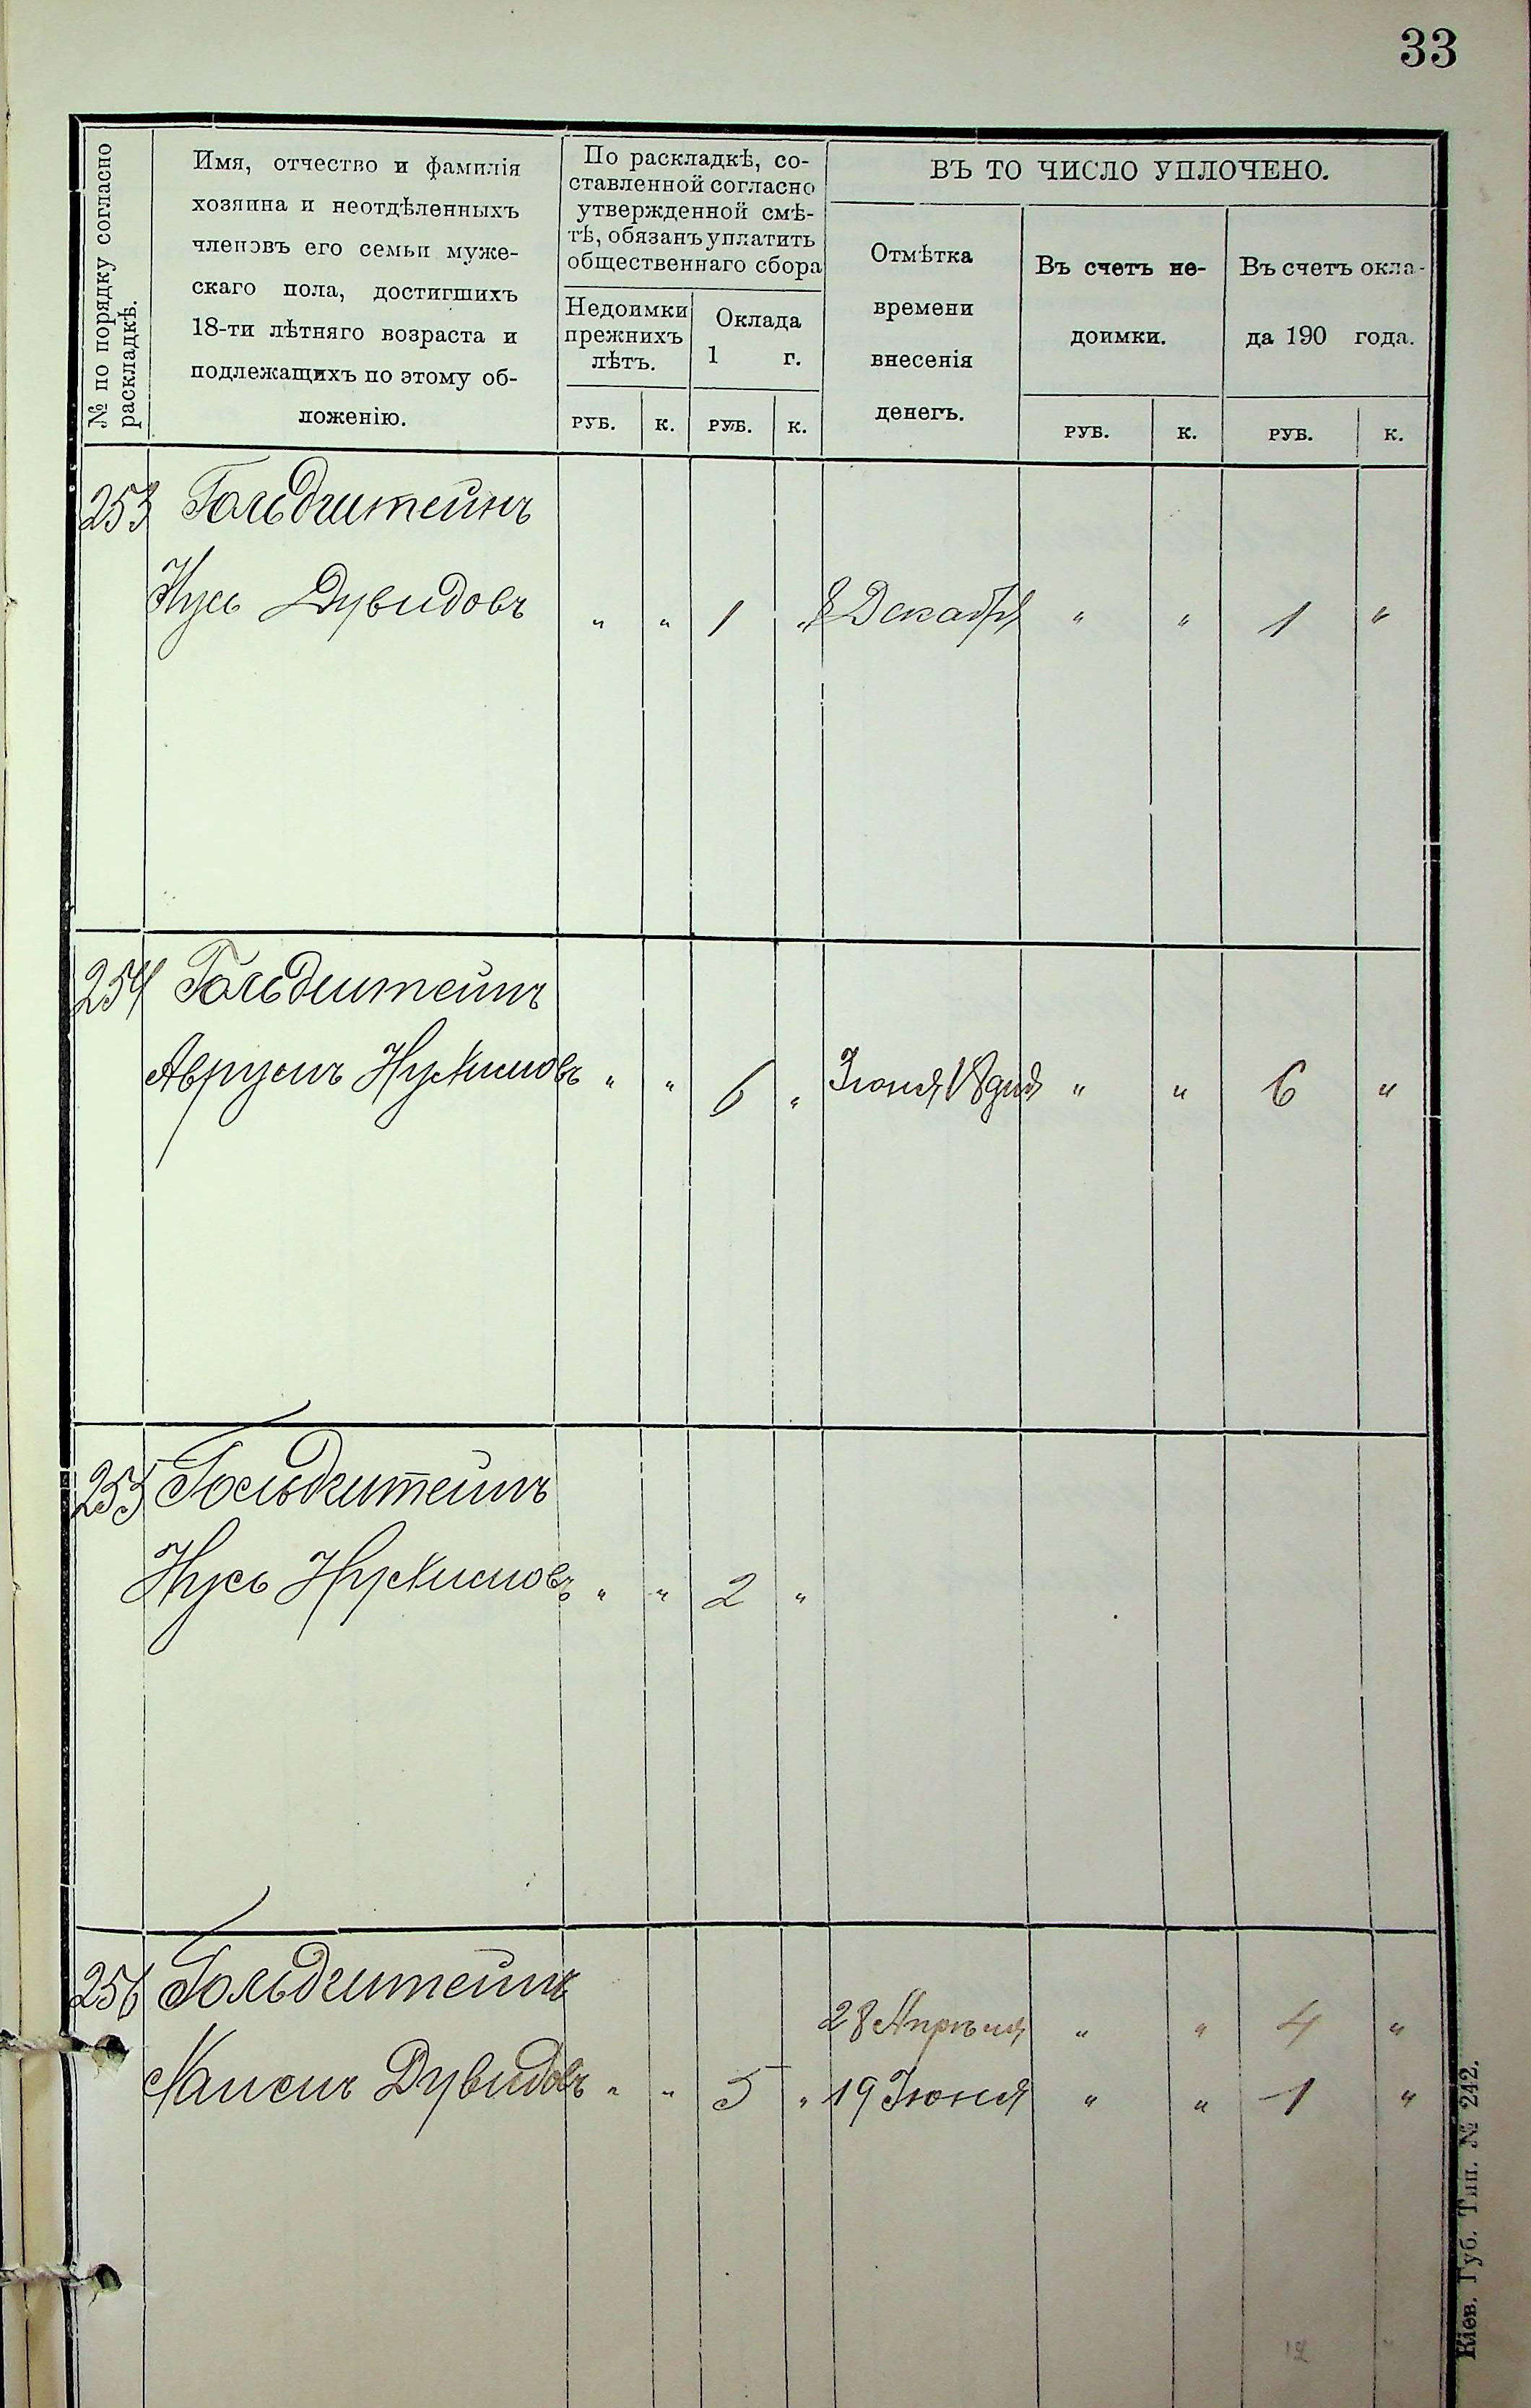 33
№ по порядку согласно
раскладкѣ.
Имя, отчество и фамилія
хозяина и неотдѣленныхъ
членовъ его семьи муже-
скаго пола, достигшихъ
18-ти лѣтняго возраста и
подлежащихъ по этому об-
ложенію.
По раскладкѣ, со-
ставленной согласно
утвержденной смѣ-
тѣ, обязанъ уплатить
общественнаго сбора
Недоимки
прежнихъ
лѣтъ.
Оклада
1 г.
ВЪ ТО ЧИСЛО УПЛОЧЕНО.
Отмѣтка
времени
внесенія
денегъ.
Въ счетъ не-
доимки.
Въ счетъ окла-
да 190 года.
РУБ. К. РУБ. К. РУБ. К. РУБ. К.
253 Гольдштейнъ
Нусь Дувидовъ " " 1 " 8 Декабря " " 1 "
254 Гольдштейнъ
Аврумъ Нухимовъ " " 6 " Іюня 18 дня " " 6 "
255 Гольдштейнъ
Нусь Нухимовъ " " 2 "
256 Гольдштейнъ
28 Апрѣля " " 4 "
Хаимъ Дувидовъ " " 5 " 19 Іюня " " 1 "
Кіев. Губ. Тип. № 242.